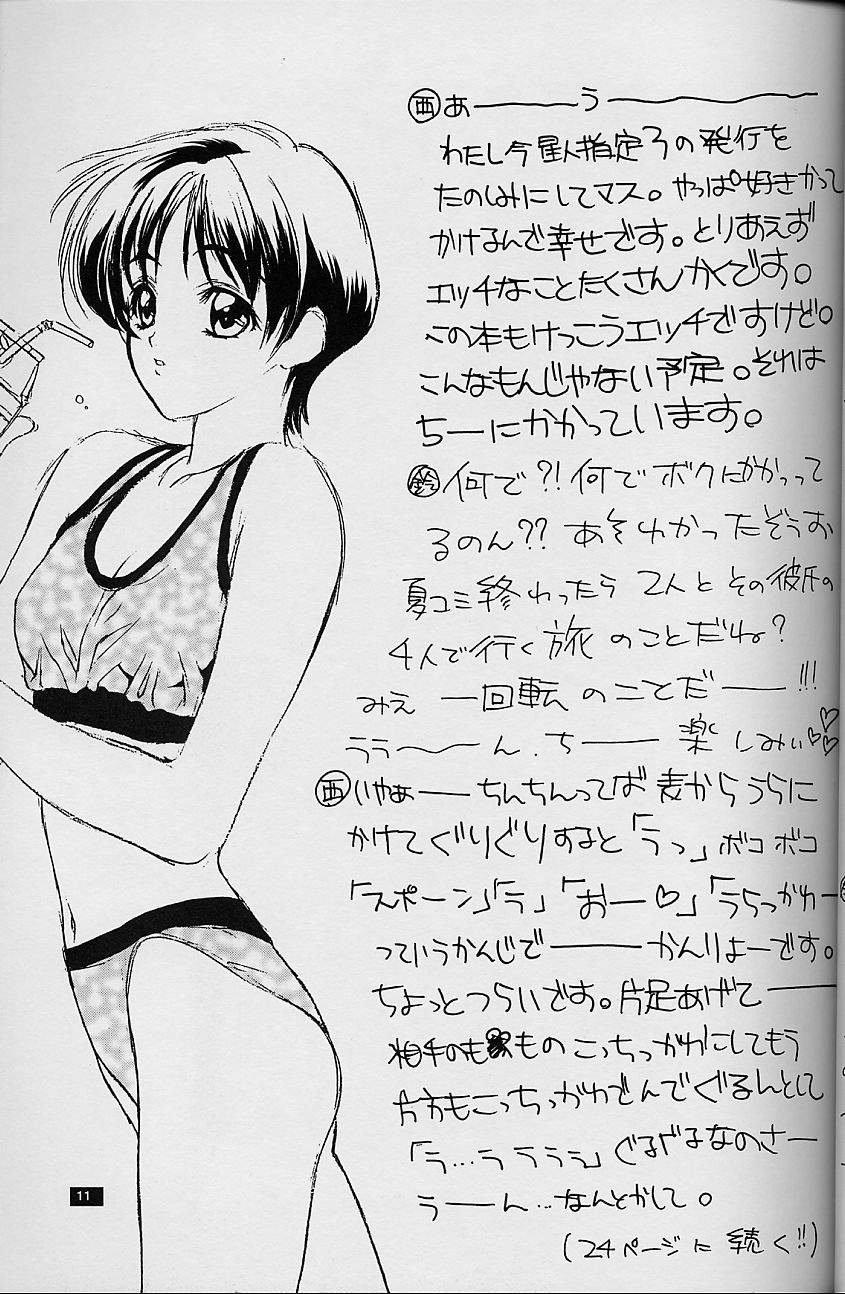 西 あーーうーーー
わたし今星人指定3の発行を
たのしみにしてマス。やっぱ好きかって
かけるんで幸せです。とりあえず
エッチなことたくさんかくです。
この本もけっこうエッチですけど。
こんなもんじゃない予定。それは
ちーにかかっています。
鈴 何で?!何でボクにかかって
るのん??あそわかったぞぅお
夏コミ終わったら2人とその彼氏の
4人で行く旅のことだね?
みえ一回転のことだーー!!!
ううー〜ん、ちーー楽しみぃ♡♡♡
西 いやぁーーちんちんってば麦からうらに
かけてぐりぐりすると「うっ」ボコボコ
「スポーン」「う」「おー♡」「うらっかわー
っていうかんじでーーーかんりょーです。
ちょっとつらいです。片足あげてーー
相手のも ものこっちっがわにしてもう
片方もこっちっがわでんでぐるんとして
「う…うううぅ」ぐるぐるなのさー
うーーん…なんとかして。
(24ページに続く!!)
11